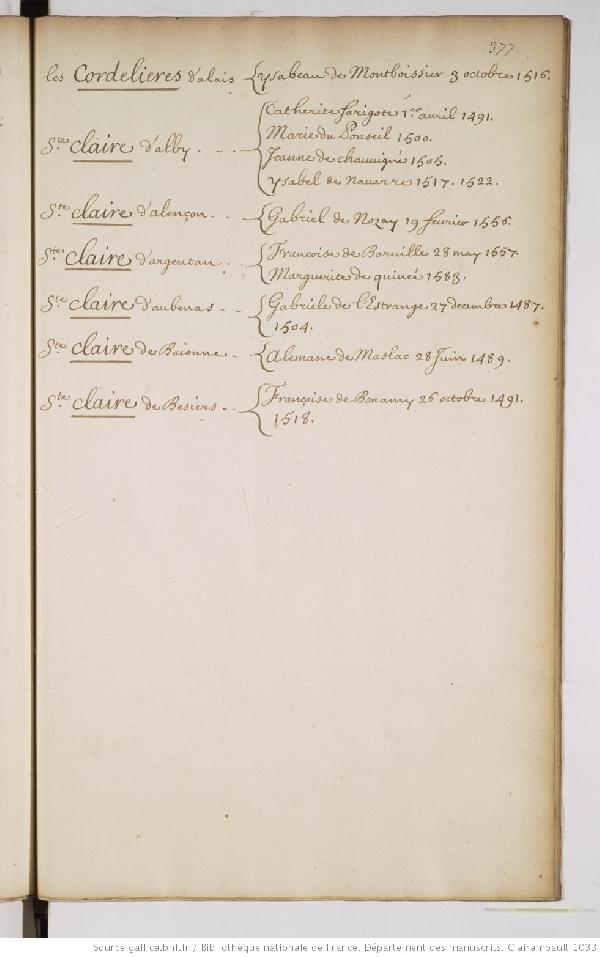 377
les Cordelieres d'alais { ysabeau de Montboissier 3 octobre 1516.
Ste claire d'alby. - - { Catherite farigote 1er avril 1491.
Marie du Conseil 1500.
Jeanne de chauvigné 1505.
ysabel de Navarre 1517. 1522.
Ste claire d'alençon. - { Gabriel de Nozay 19 fevrier 1556.
Ste claire d'argentan. { Francoise de Barville 28 may 1557.
Marguerite de quincé 1583.
Ste claire d'aubenas - { Gabriele de l'Estrange 27 decembre 1487.
1504.
Ste claire de Baionne. - { Alemane de Maslac 28 Juin 1489.
Ste claire de Besiers - - { Françoise de Bonamy 26 octobre 1491.
1518.
Source gallica.bnf.fr / Bibliothèque nationale de France. Département des manuscrits. Clairambault 1033